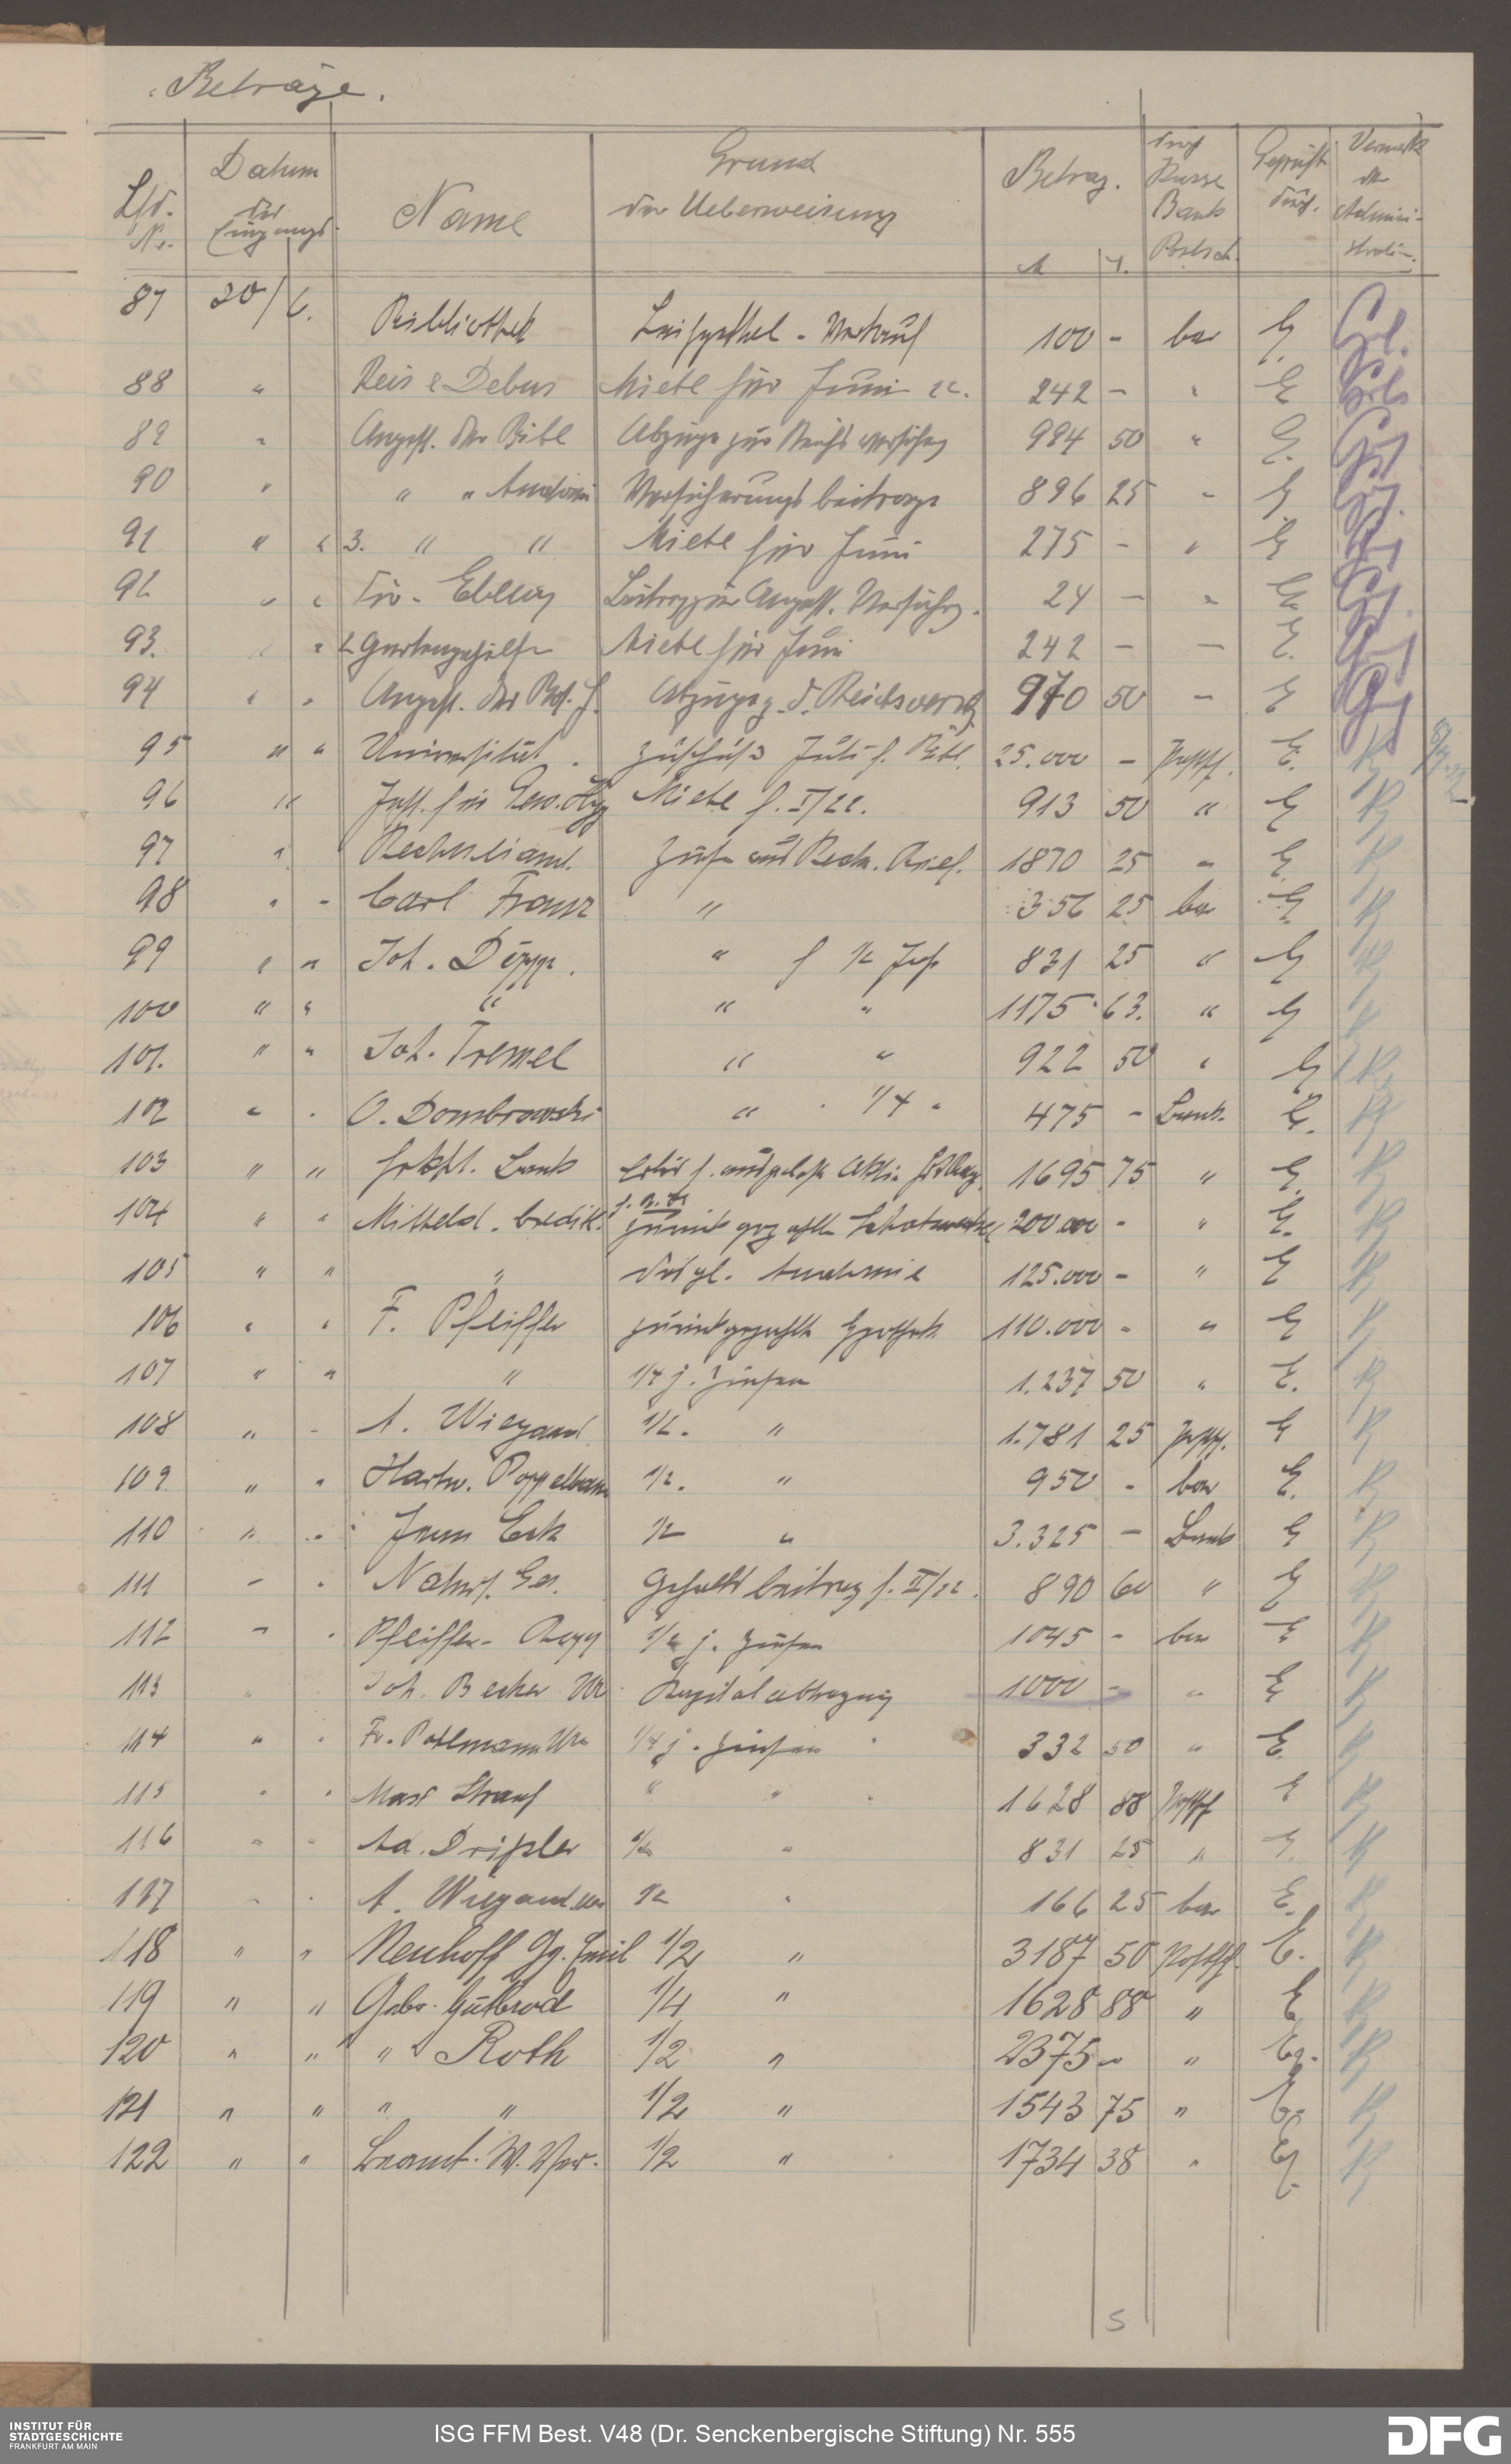 Beträge.
Lfd. Nr. Datum des Eingangs Name Grund der Ueberweisung Betrag. M ₰. durch Kasse Bank Postsch. Geprüft durch. Vermerk der Administration.
87 20/6. Bibliothek Verkauf 100 - bar E.
88 " Reis & Debus Miete für Juni 22. 242 - " E
89 " Angest. der Bibl Abzüge zur Reichsversichg 984 50 " E.
90 " " " Anatomie Versicherungsbeiträge 896 25 " E
91 " " 3. " " Miete für Juni 275 - " E
92 " " Frv. Beitrag zur Angest. Versichrg. 24 - "
93. " " 2 Gartengehilfen Miete für Juni 242 - - E.
94 " " Angest. des Bot. G. Abzüge z. d. Reichsvers. 970 50 - E
95 " " Universität. Zuschuss Juli f. Bibl. 25.000 - Postsch. E.
96 " Inst. für Gew. Hyg Miete f. I/22. 913 50 " E
97 " Rechneiamt. Zinsen aus 1870 25 " E.
98 " - Carl Franz " 356 25 bar E
99 " " Joh. Dipp. " f 1/2 Jahr 831 25 " E
100 " " " " " 1175 63. " E
101. " " Joh. Tremel " " 922 50 " E
102 " " O. Dombrowski " 1/4 " 475 - Bank. E.
103 " " Bank Erlös f. ausgeloste Aktie 1695 75 " E.
104 " " Mitteld. Credit. zurückgezahlte Schatzwechsel 200.000 - " E.
105 " " " desgl. Anatomie 125.000 - " E
106 " " F. Pfeiffer zurückgezahlte Hypothek 110.000 - " E
107 " " " 1/4 j. Zinsen 1.237 50 " E.
108 " - A. Wiegand. 1/2. " 1.781 25 Postsch. E
109 " " Hartw. Poppelbaum 1/2. " 950 - bar E.
110 " " Jean Eck 1/2 " 3.325 - Bank E
111 - " Naturf. Ges. Gehaltsbeitrag f. II/22. 890 60 " E
112 " " Pfeiffer- 1/2 j. Zinsen 1045 - bar E
113 " Joh. Becker Ww Kapitalabtragung 1000 - " E
114 " " Fr. Pohlmann Ww 1/4 j. Zinsen 332 50 " E.
115 " " Max Strauß " " 1628 88 Postsch E
116 " " Ad. Drißler 1/2 " 831 25 " E.
117 " " A. Wiegand 1/2 " 166 25 bar E.
118 " " Neuhoff Gg. Emil 1/2 " 3187 50 Postsch. E.
119 " " Gebr. Gutbrod 1/4 " 1628 88 " E
120 " " " Roth 1/2 " 2375 - " E.
121 " " " " 1/2 " 1543 75 " E.
122 " " W. Wwe. 1/2 " 1734 38 " E.
5
INSTITUT FÜR
STADTGESCHICHTE
FRANKFURT AM MAIN
ISG FFM Best. V48 (Dr. Senckenbergische Stiftung) Nr. 555
DFG